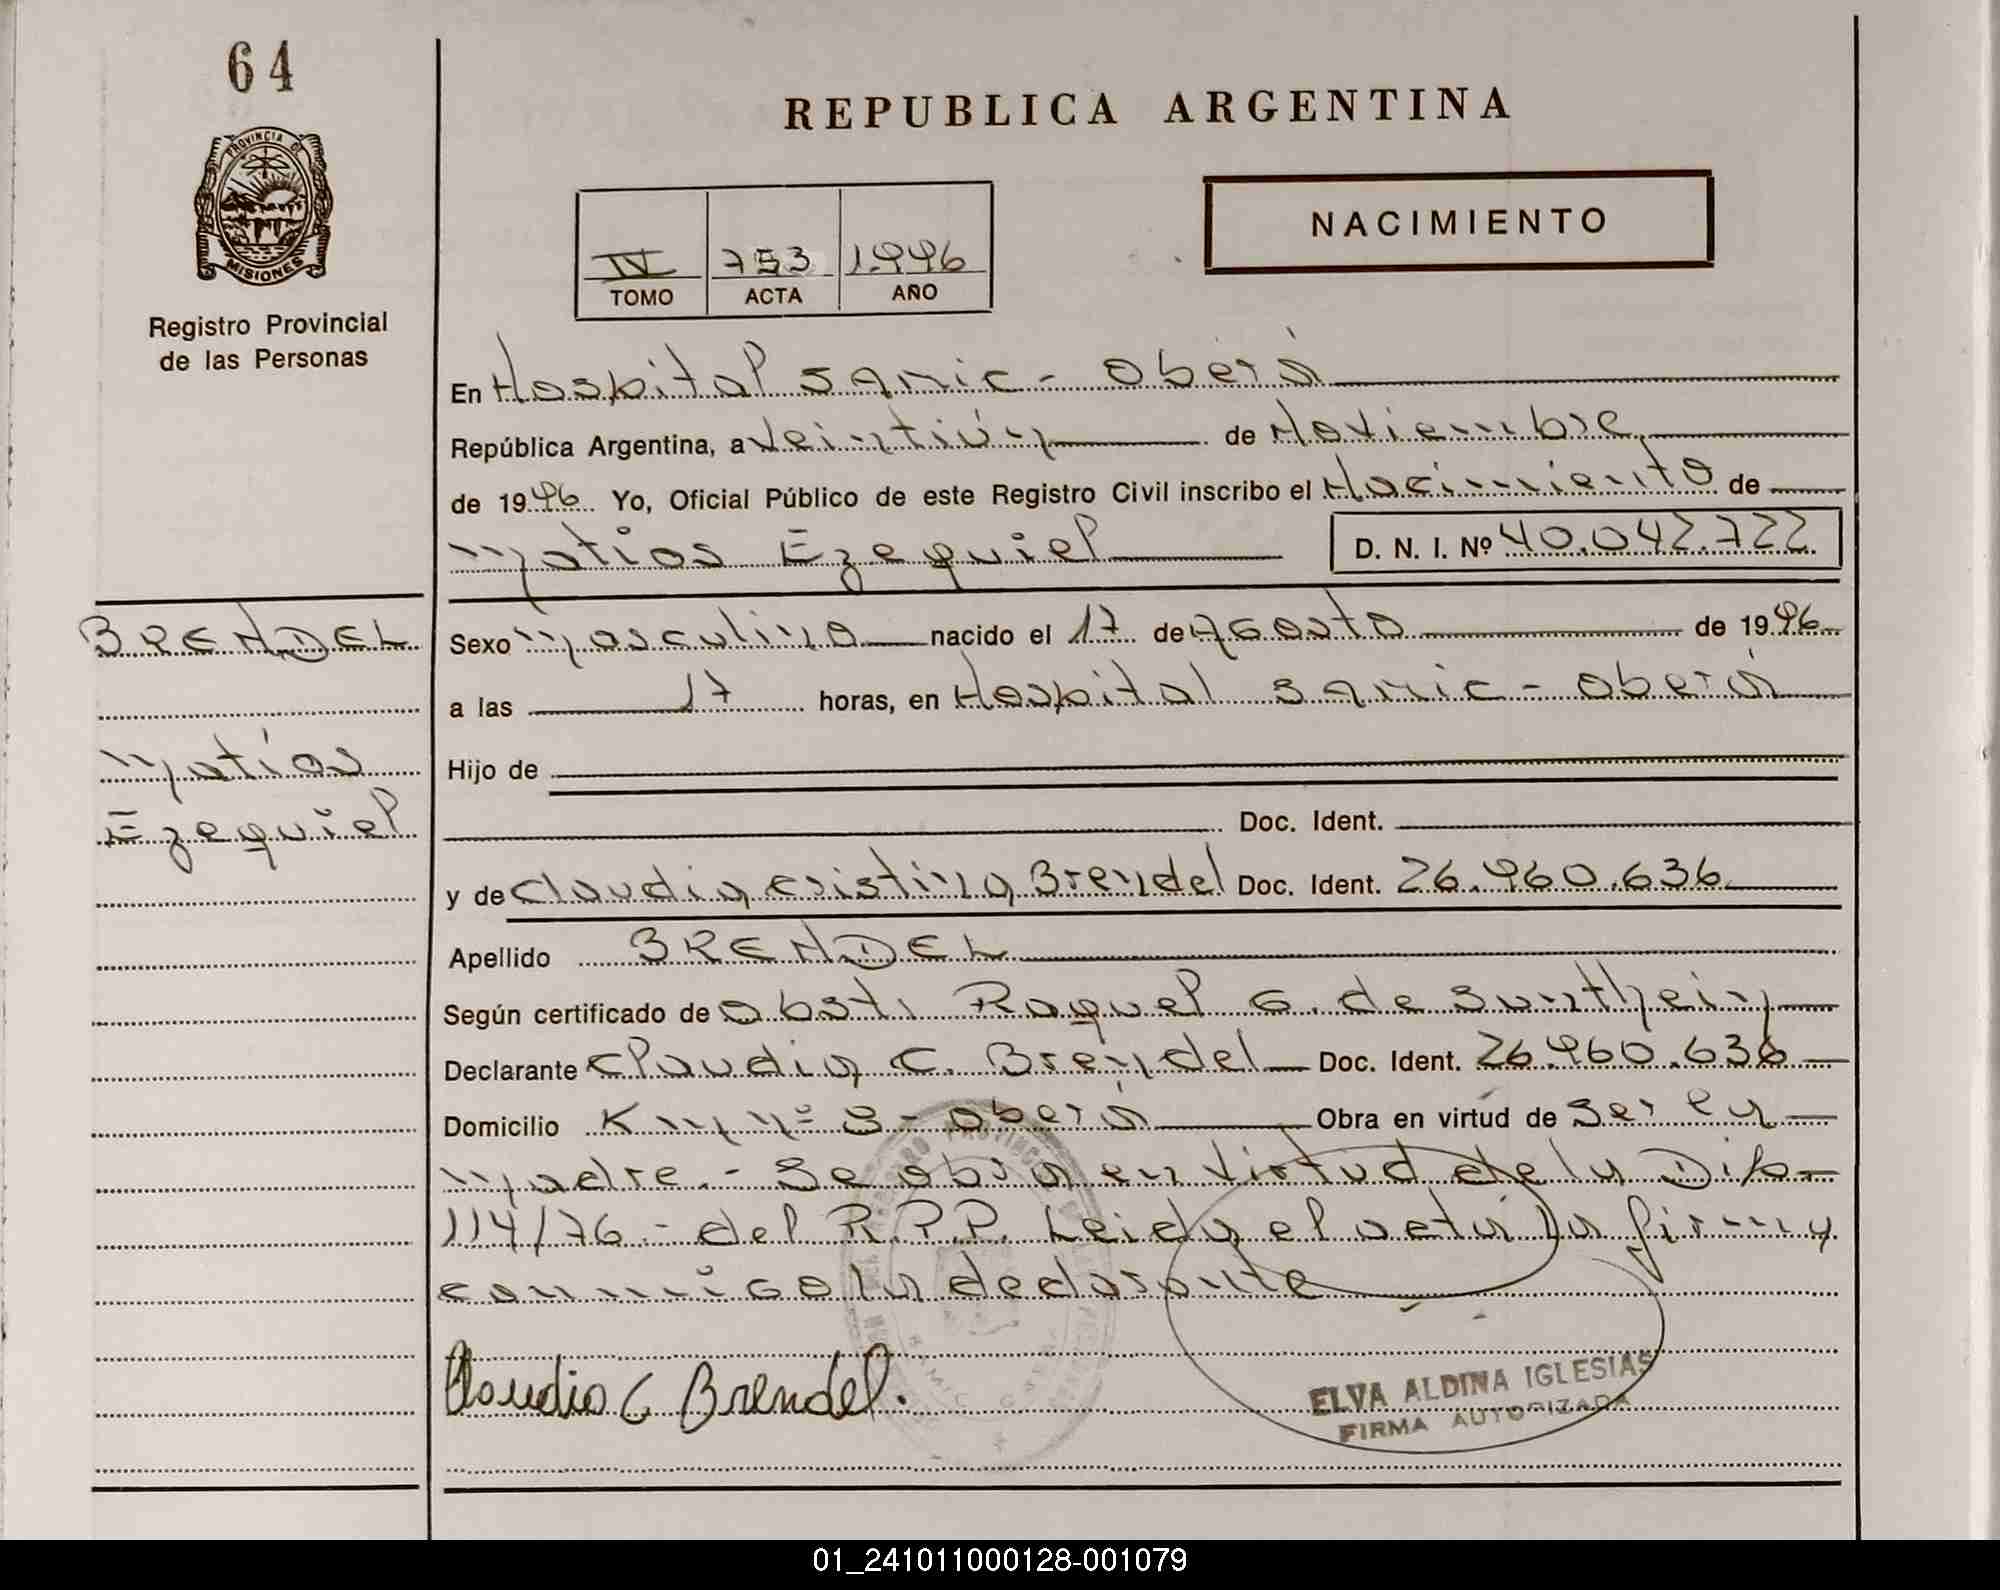 64
PROVINCIA DE
MISIONES
Registro Provincial
de las Personas
REPUBLICA ARGENTINA
NACIMIENTO
IV 753 1.996
TOMO ACTA AÑO
En Hospital Samic - Oberá
República Argentina, a Veintiún de Noviembre
de 1996 Yo, Oficial Público de este Registro Civil inscribo el Nacimiento de
Matías Ezequiel D. N. I. Nº 40.042.722
BRENDEL
Matías
Ezequiel
Sexo Masculino nacido el 17 de Agosto de 1996
a las 17 horas, en Hospital Samic - Oberá
Hijo de
Doc. Ident.
y de Claudia Cristina Brendel Doc. Ident. 26.960.636
Apellido BRENDEL
Según certificado de Obst. Raquel G. de Sunthein
Declarante Claudia C. Brendel Doc. Ident. 26.960.636
Domicilio Km nº 8 - Oberá Obra en virtud de Ser la
madre. - Se obra en virtud de la Disp.
114/76 - del R.P.P. Leida el acta la firma
conmigo la declarante
Claudia C Brendel.
ELVA ALDINA IGLESIAS
FIRMA AUTORIZADA
01_241011000128-001079